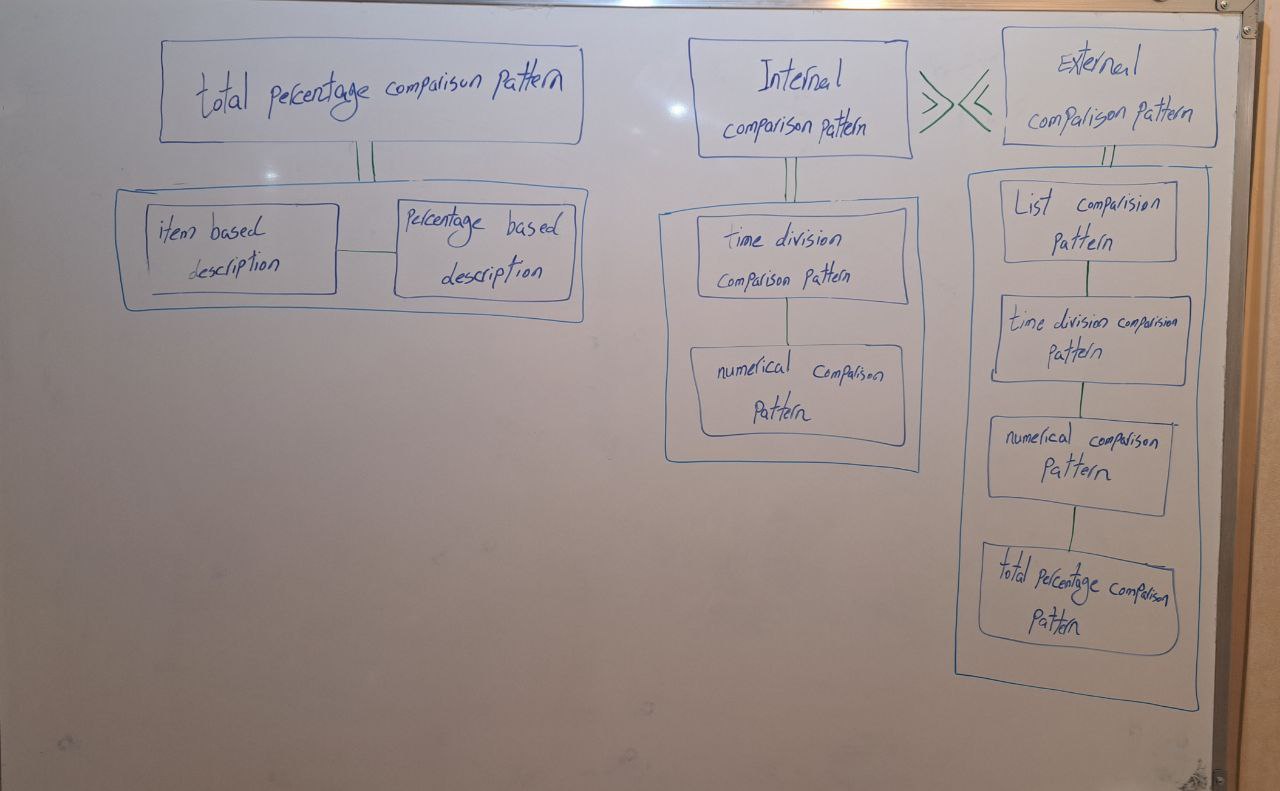 total percentage comparison pattern
item based
description
percentage based
description
Internal
comparison pattern
time division
comparison pattern
numerical comparison
pattern
External
comparison pattern
List comparision
pattern
time division comparision
pattern
numerical comparison
pattern
total percentage comparison
pattern